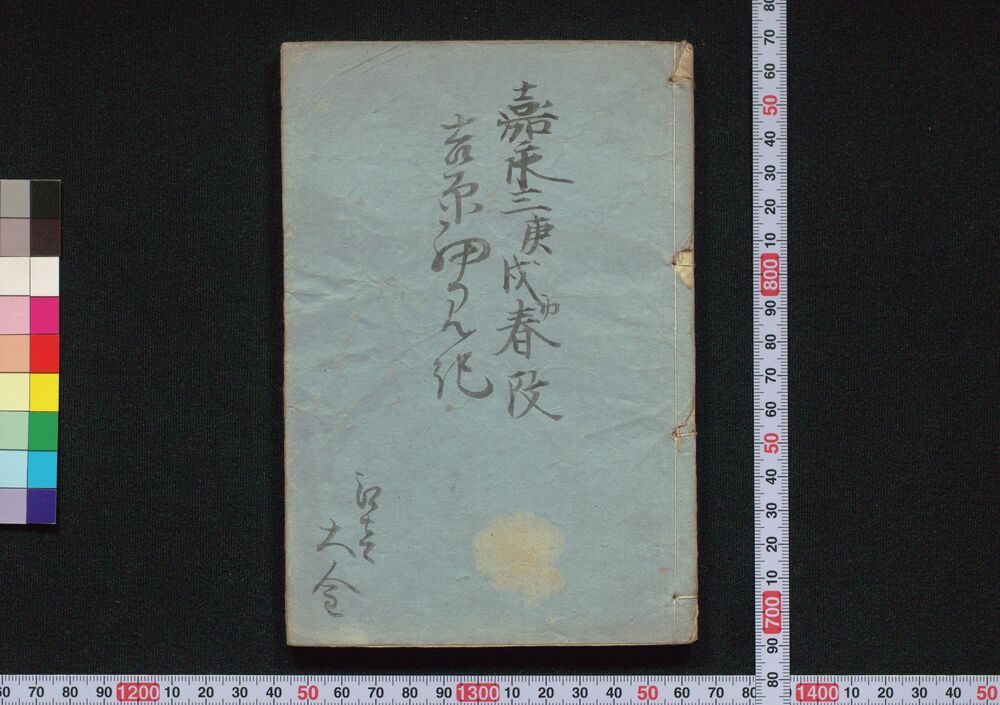 嘉永三庚戌春改
吉原細見記
大金
60 70 80 90 1200 10 20 30 40 50 60 70 80 90 1300 10 20 30 40 50 60 70 80 1400 10 20 30 40 50
80 70 60 50 40 30 20 10 800 90 80 70 60 50 40 30 20 10 700 90 80